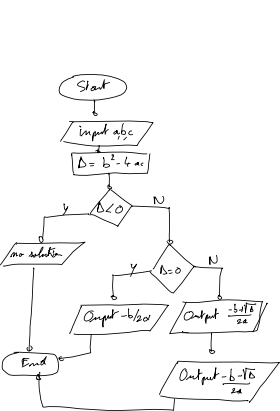 Start
input a,b,c
Δ = b² - 4 ac
Δ<0
Y
N
no solution
Δ=0
Y
N
Output -b/2a
Output -b+√Δ/2a
Output -b-√Δ/2a
End